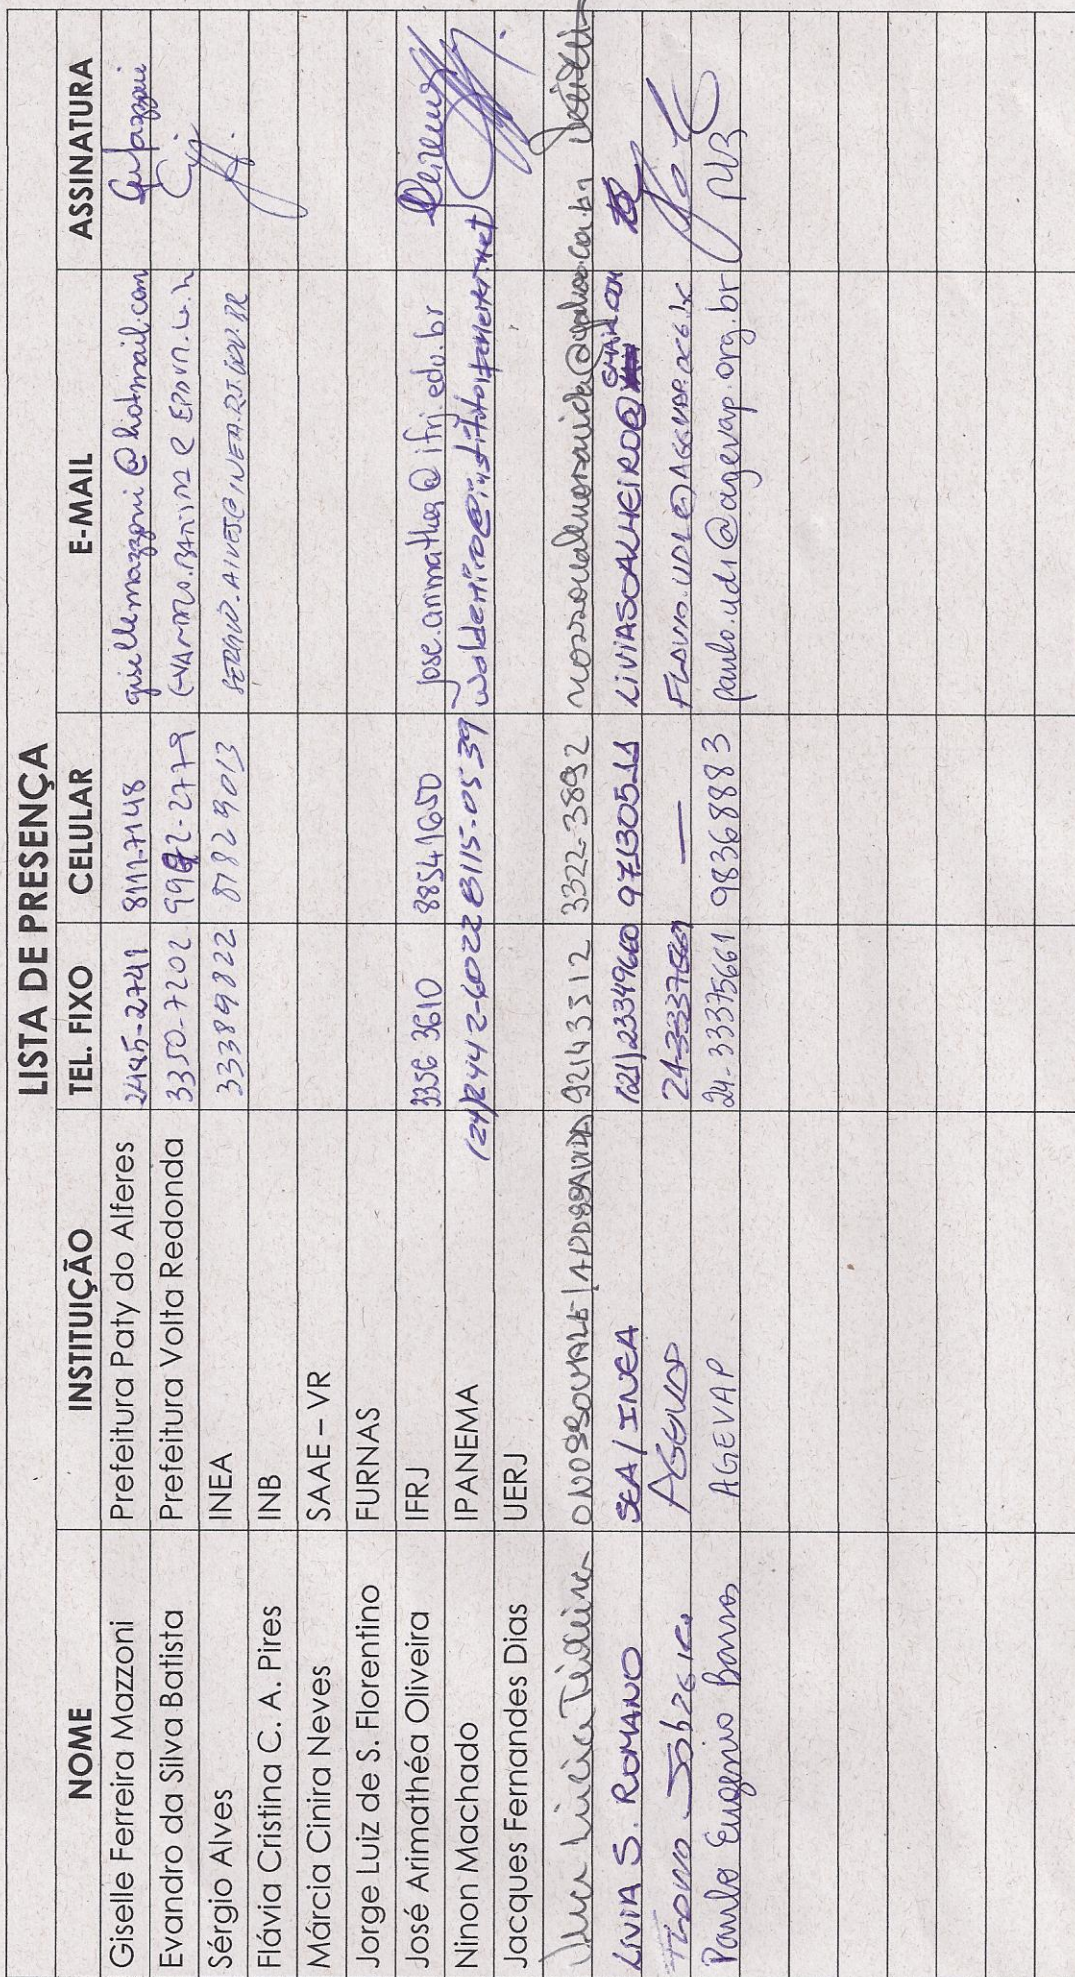 LISTA DE PRESENÇA
NOME INSTITUIÇÃO TEL. FIXO CELULAR E-MAIL ASSINATURA
Giselle Ferreira Mazzoni Prefeitura Paty do Alferes 2485-2741 8111-7148 gisellemazzoni@hotmail.com
Evandro da Silva Batista Prefeitura Volta Redonda 3350-7202
Sérgio Alves INEA 33389822 87829013 SERGIO.ALVES@INEA.RJ.GOV.BR
Flávia Cristina C. A. Pires INB
Márcia Cinira Neves SAAE – VR
Jorge Luiz de S. Florentino FURNAS
José Arimathéa Oliveira IFRJ 3356 3610 88541650 jose.arimathea@ifrj.edu.br
Ninon Machado IPANEMA (24)2442-6022 8115-0539
Jacques Fernandes Dias UERJ
92143312 3322-3892
LIVIA S. ROMANO SEA/INEA (21)23349660 971305511 LIVIASOALHEIRO@GMAIL.COM
AGEVAP —
Paulo Eugenio Barros AGEVAP 24-33375661 98368883 paulo.udi@agevap.org.br